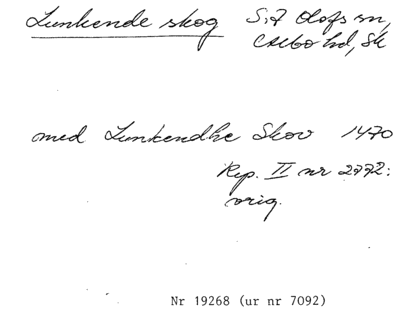 Lunkende skog S:t Olofs sn,
Albo hd, Sk
med Lunkendhe Skov 1470
Rep. II nr 2772:
orig.
Nr 19268 (ur nr 7092)